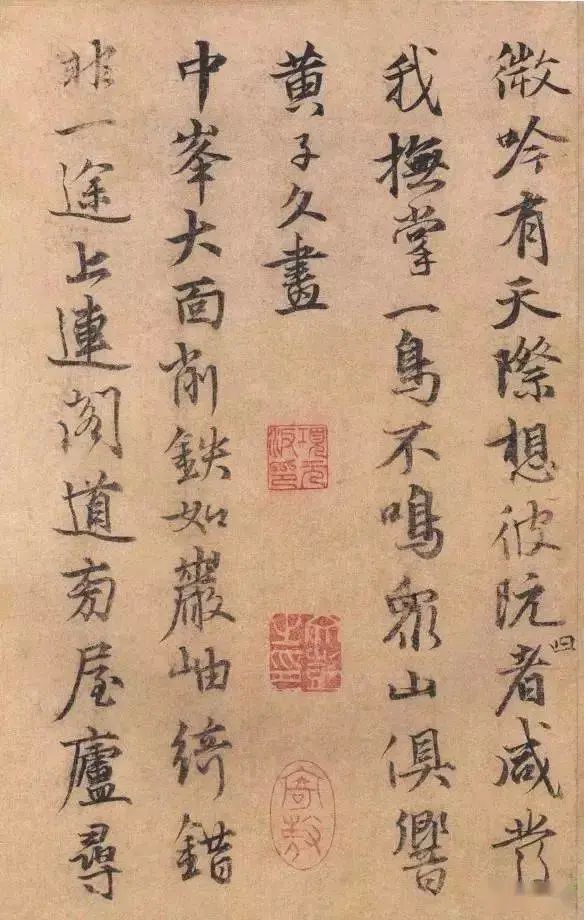 微吟有天際想彼阮者咸
我撫掌一鳥不鳴衆山俱響
黄子久畫
項元汴印
寄敖
中峯大面削鉄如巖岫綺錯
非一途上連閣道旁屋廬尋